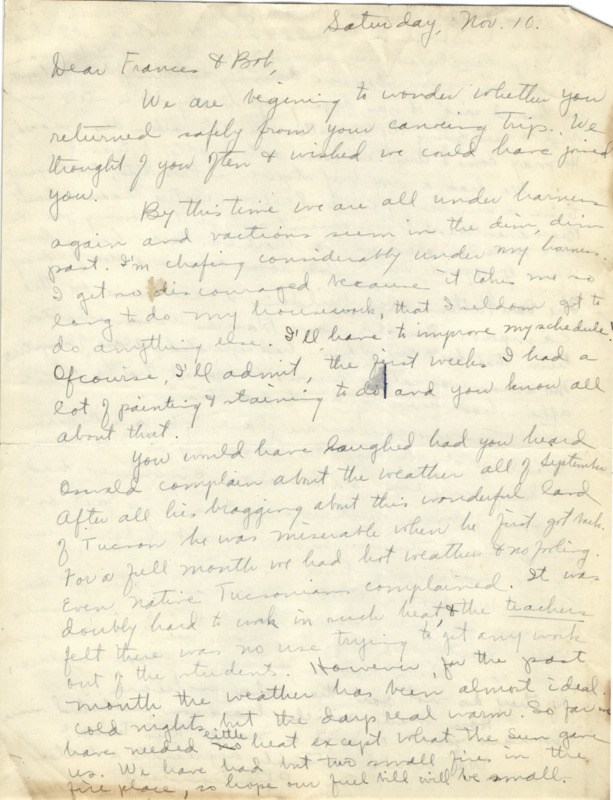 Saturday, Nov. 10.
Dear Frances & Bob,
We are begining to wonder whether you
returned safely from your canoeing trip. We
thought of you often & wished we could have joined
you.
By this time we are all under harness
again and vactions seem in the dim, dim
past. I'm chafing considerably under my harness.
I get so discouraged because it takes me so
long to do my housework, that I seldom get to
do anything else. I'll have to improve my schedule!
Ofcourse, I'll admit, the first weeks I had a
lot of painting & staining to do and you know all
about that.
You would have laughed had you heard
Oswald complain about the weather all of September
After all his bragging about this wonderful land
of Tucson he was miserable when he first got back.
For a full month we had hot weather & no fooling.
Even native Tucsonians complained. It was
doubly hard to work in such heat, & the teachers
felt there was no use trying to get any work
out of the students. However, for the past
month the weather has been almost ideal-
cold nights, but the days real warm. So far we
have needed little heat except what the sun gave
us. We have had but two small fires in the
fire place, so hope our fuel bill will be small.